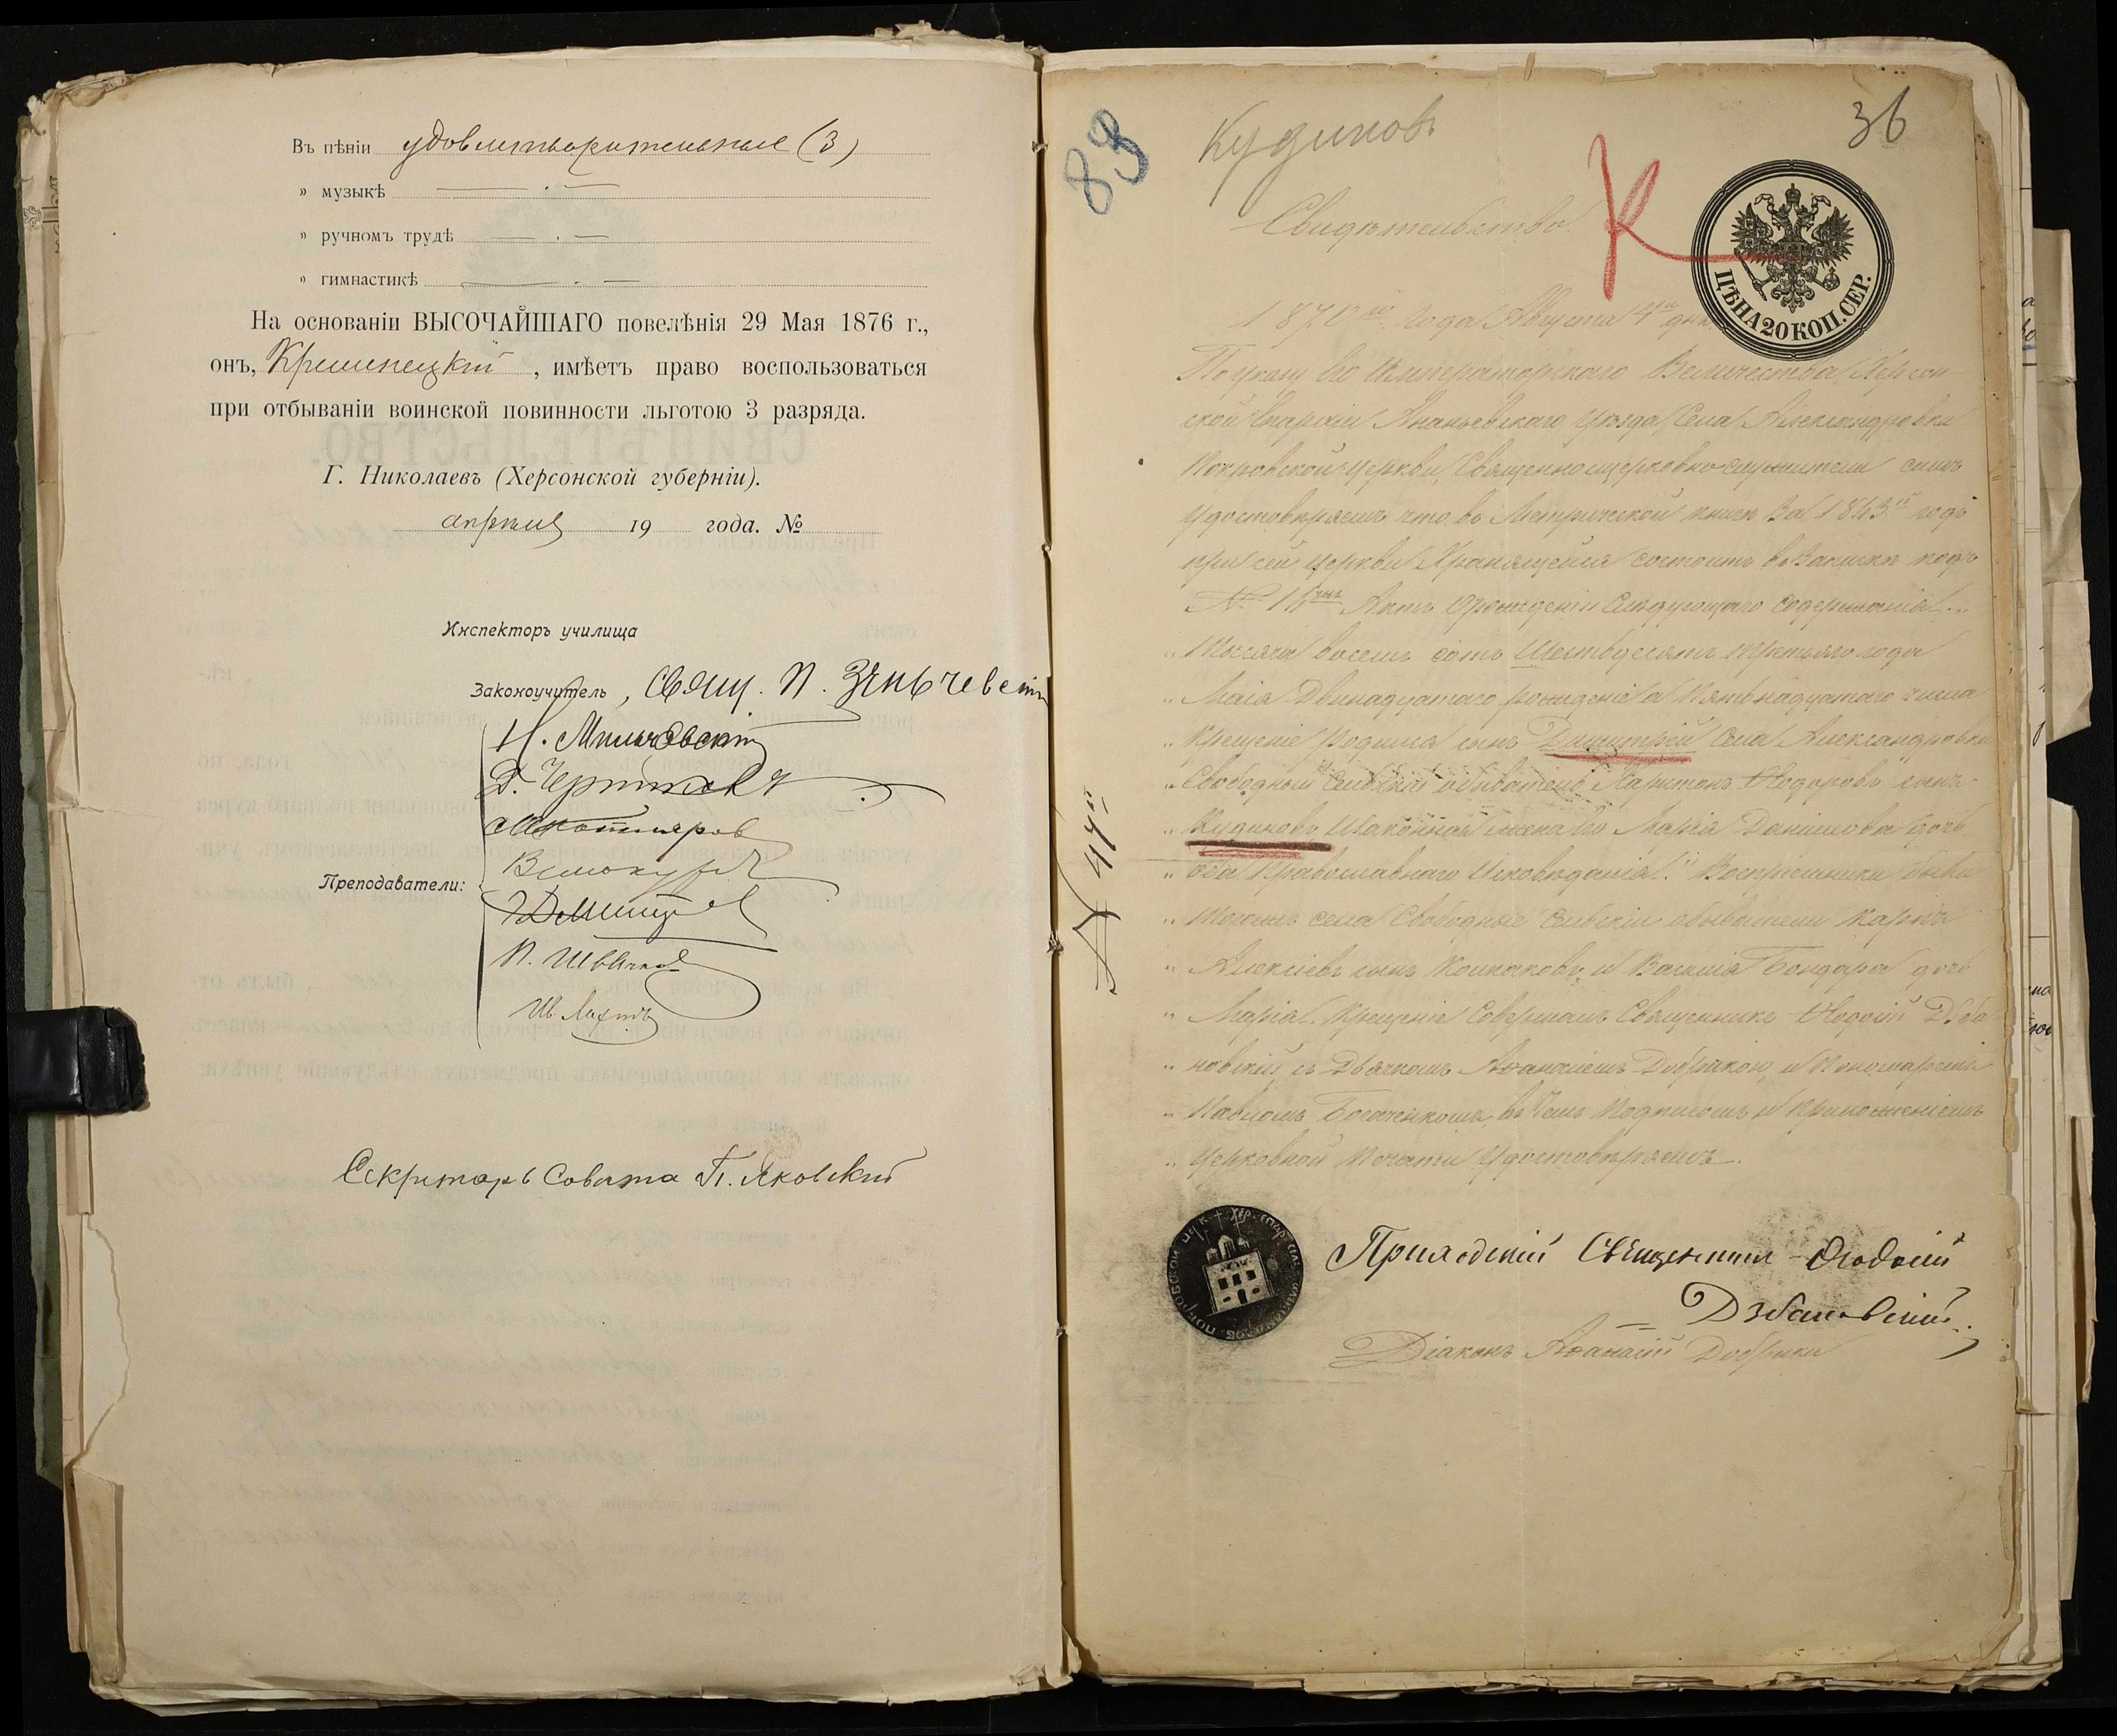 Въ пѣніи удовлетворительные (3)
» музыкѣ
» ручномъ трудѣ
» гимнастикѣ
На основаніи ВЫСОЧАЙШАГО повелѣнія 29 Мая 1876 г.,
онъ, , имѣетъ право воспользоваться
при отбываніи воинской повинности льготою 3 разряда.
Г. Николаевъ (Херсонской губерніи).
апрѣля 19 года. №
Инспекторъ училища
Законоучитель, Свящ. П.
Н.
Д.
Преподаватели:
П.
Секретарь Совѣта П. Яковскій
83
Кудиновъ
36
К
Свидѣтельство
ЦѢНА 20 КОП. СЕР.
1870го года Августа 4го дня
По указу Его Императорскаго Величества, Херсон-
ской Епархіи Ананьевскаго уѣзда, Села Александровки
Покровской церкви, Священноцерковнослужители симъ
удостовѣряемъ что въ Метрической книгѣ за 1863й годъ
при сей церкви хранящейся состоитъ въ запискѣ подъ
№ Актъ о рожденіи слѣдующаго содержанія:
" Тысяча восемь сотъ Шестьдесятъ третьяго года
" Маія Двѣнадцатаго рожденіе а Пятьнадцатаго числа
" Крещеніе родился сынъ Димитрій Села Александровки
" Свободный сельскій обыватель Харитонъ Ѳеодоровъ сынъ
" Кудиновъ и законная жена его Марія Даніилова дочь
" оба Православнаго исповѣданія. Воспріемники были
" тогожъ села Свободные сельскіи обыватели Карпъ
" Алексіевъ сынъ и Василія Бондаря дочь
" Марія. Крещеніе Совершалъ Священникъ Ѳеодосій Дзба
" новскій, съ Дьячкомъ Аѳанасіемъ и Пономаремъ
" Павломъ въ чемъ Подписомъ и Приложеніемъ
" Церковной Печати Удостовѣряемъ.
№ 47й
Приходскій Священникъ Ѳеодосій
Дзбановскій
Діаконъ Аѳанасій